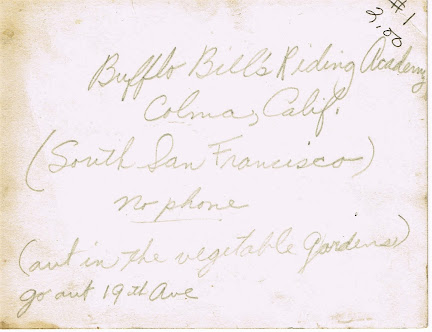 #1
2.00
Bufflo Bill's Riding Academy
Colma, Calif.
(South San Francisco)
no phone
(out in the vegetable gardens)
go out 19th Ave